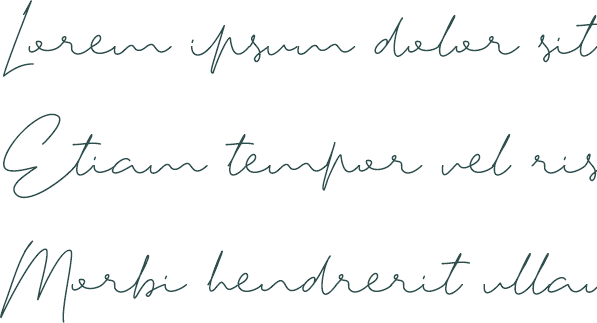 Lorem ipsum dolor sit
Etiam tempor vel ris
Morbi hendrerit ullam